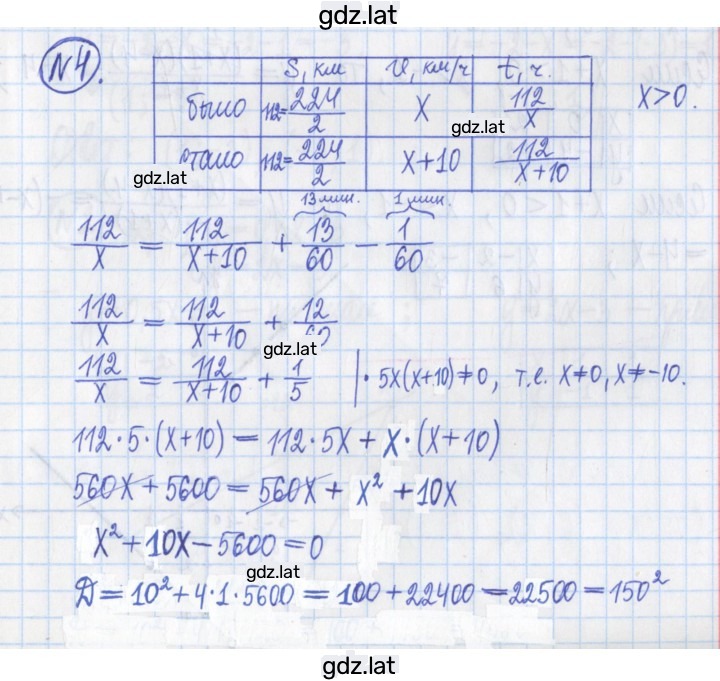 gdz.lat
№4.
S, км | v, км/ч | t, ч.
было | 112=224/2 | x | 112/x
x>0.
gdz.lat
стало | 112=224/2 | x+10 | 112/(x+10)
gdz.lat
13 мин. 1 мин.
112/x = 112/(x+10) + 13/60 − 1/60
112/x = 112/(x+10) + 12/60
gdz.lat
112/x = 112/(x+10) + 1/5 |· 5x(x+10)≠0, т.е. x≠0, x≠-10.
112·5·(x+10) = 112·5x + x·(x+10)
560x + 5600 = 560x + x² + 10x
x² + 10x − 5600 = 0
gdz.lat
Д = 10² + 4·1·5600 = 100 + 22400 = 22500 = 150²
gdz.lat